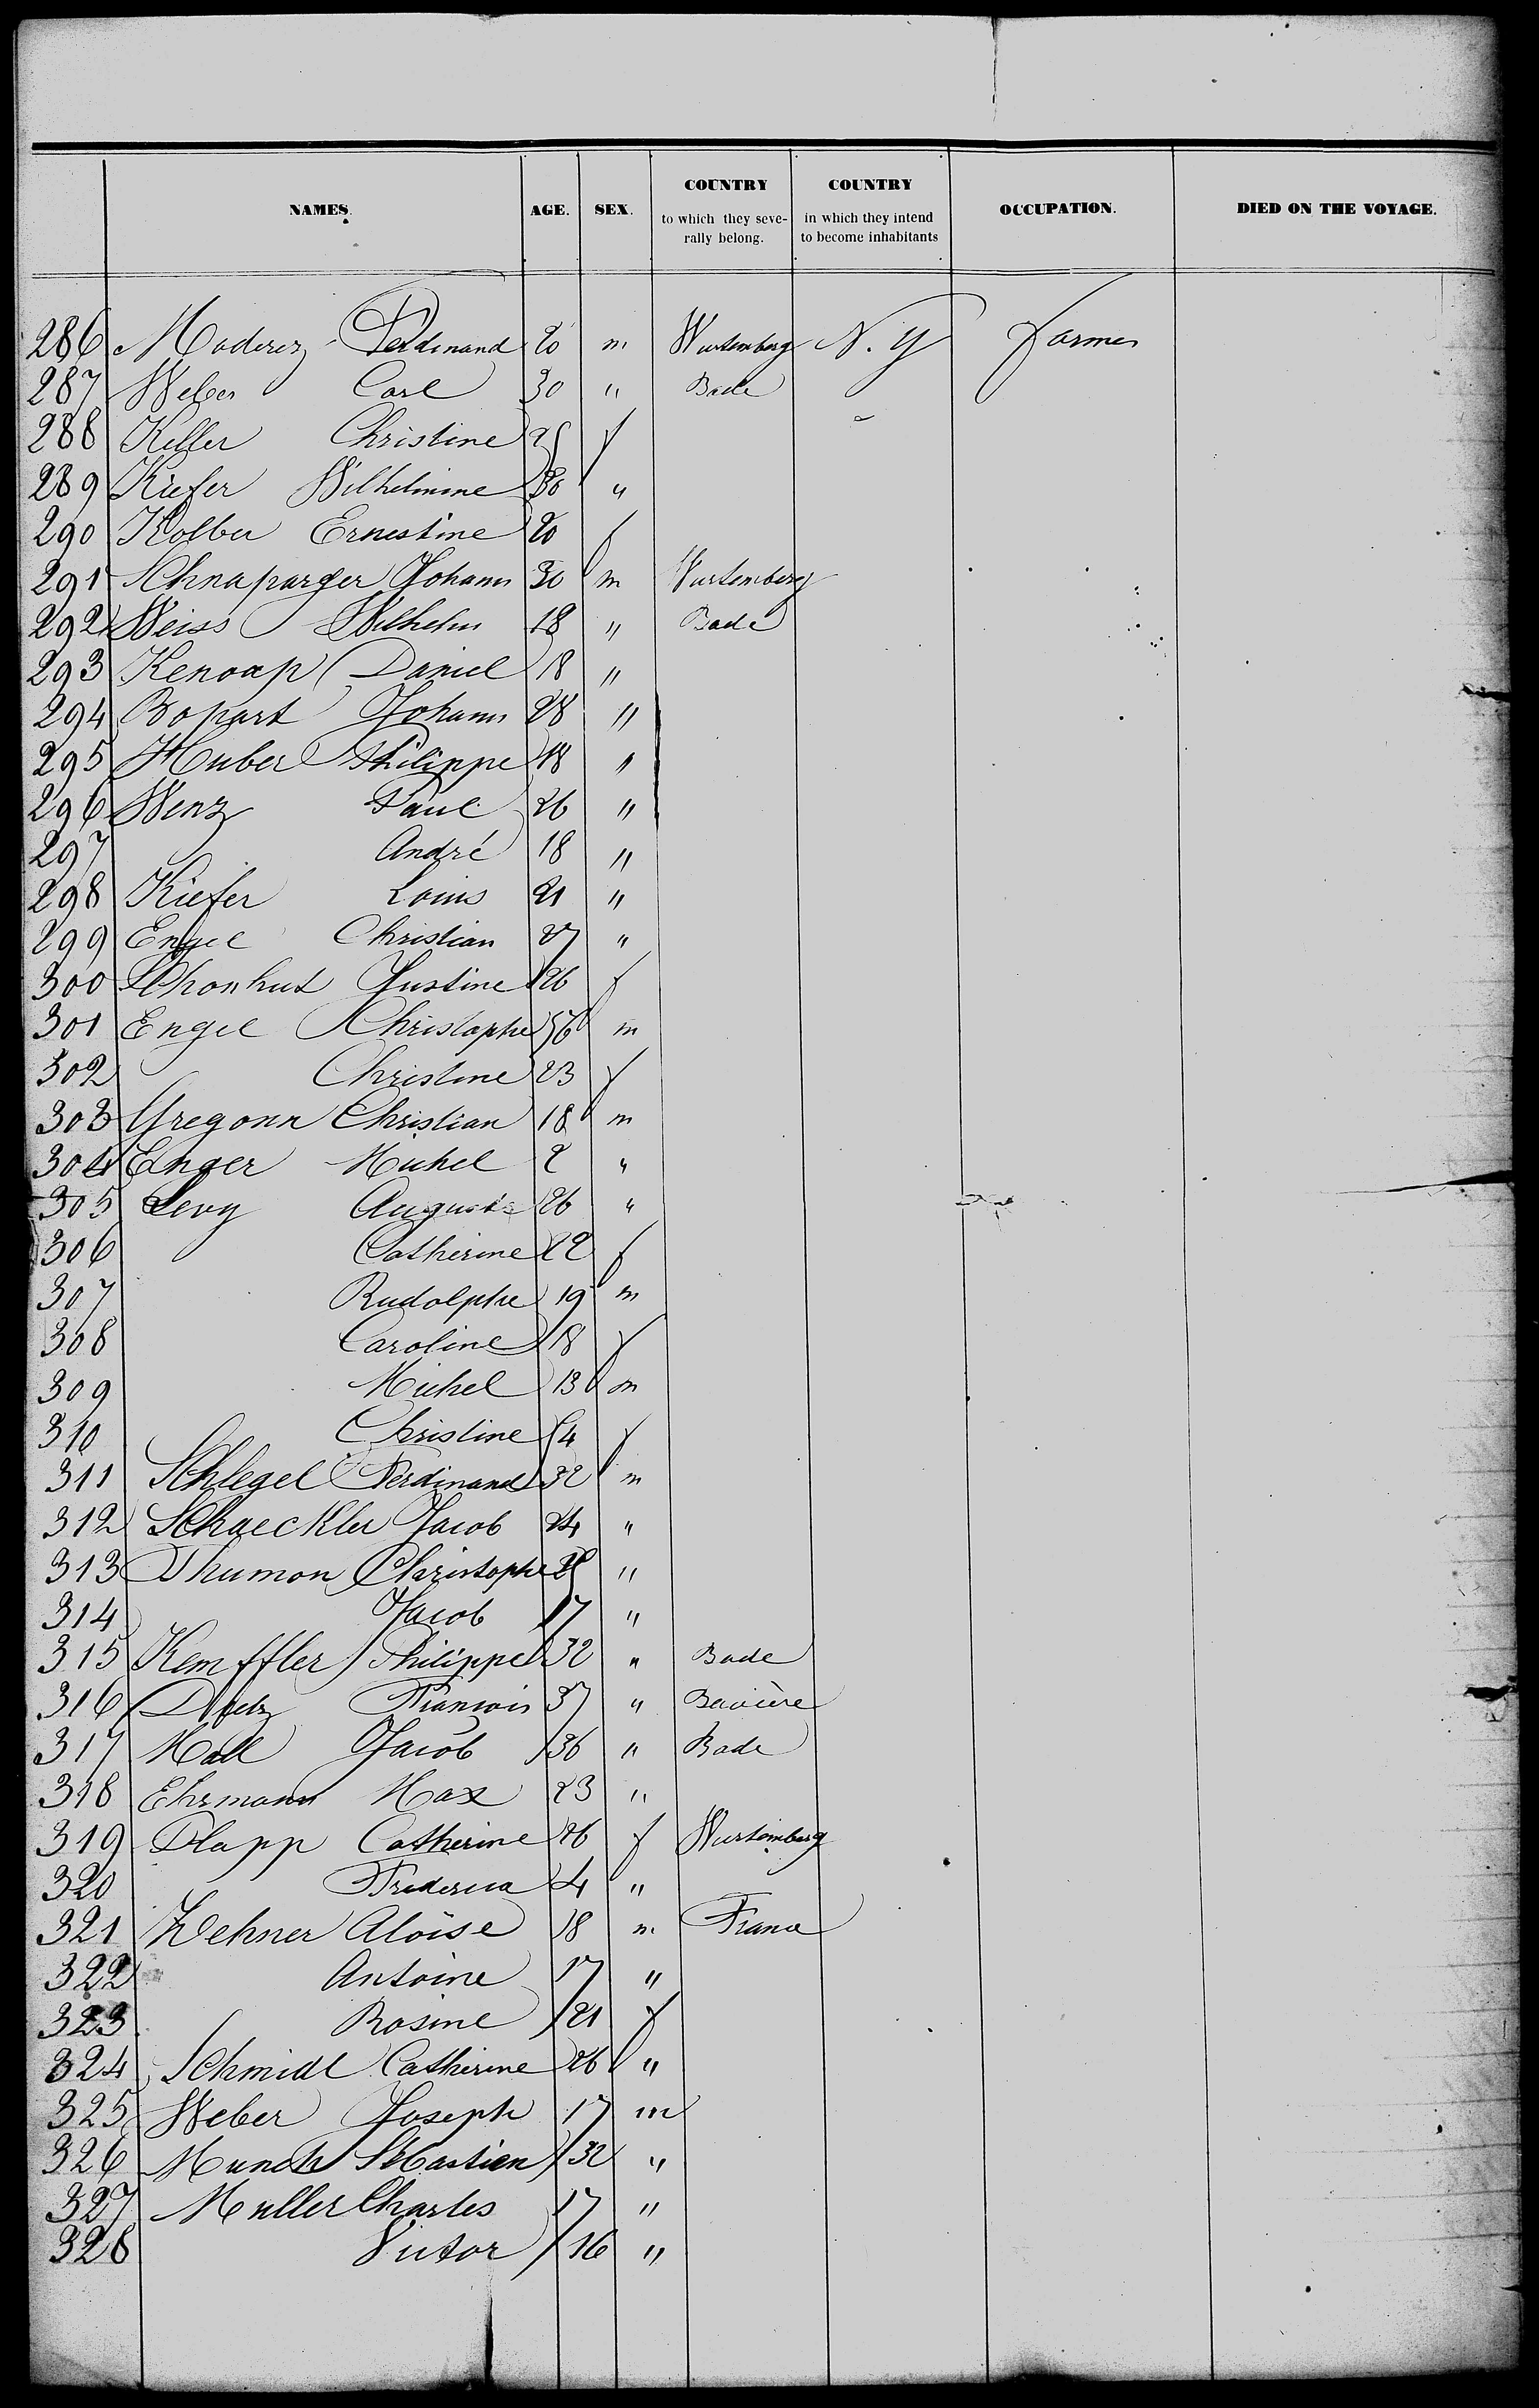 NAMES. AGE. SEX. COUNTRY to which they seve-rally belong. COUNTRY in which they intend to become inhabitants OCCUPATION. DIED ON THE VOYAGE.
286 Maderez Ferdinand 20 m Wurtemberg N. Y Farmer
287 Weber Carl 30 " Bade
288 Keller Christine 25 f
289 Kiefer Wilhelmine 30 "
290 Kolber Ernestine 20 f
291 Schnaparger Johann 30 m Wurtemberg
292 Weiss Wilhelm 18 " Bade
293 Kenoap Daniel 18 "
294 Bopart Johann 28 "
295 Huber Philippe 18 "
296 Wenz Paul 26 "
297 André 18 "
298 Kiefer Louis 21 "
299 Engel Christian 27 "
300 Schonhut Justine 26 f
301 Engel Christophe 56 m
302 Christine 23 f
303 Gregonn Christian 18 m
304 Enger Michel 2 "
305 Levy Auguste 26 "
306 Catherine 22 f
307 Rudolphe 19 m
308 Caroline 18 f
309 Michel 13 m
310 Christine 54 f
311 Schlegel Ferdinand 32 m
312 Schaeckler Jacob 24 "
313 Thumon Christophe 25 "
314 Jacob 17 "
315 Kemffler Philippe 32 " Bade
316 François 37 " Bavière
317 Mall Jacob 36 " Bade
318 Ehrmann Max 23 "
319 Plapp Catherine 26 f Wurtemberg
320 Frederica 4 "
321 Wehner Aloïse 18 m France
322 Antoine 17 "
323 Rosine 21 f
324 Schmidt Catherine 26 "
325 Weber Joseph 17 m
326 Munch Sébastien 32 "
327 Muller Charles 17 "
328 Victor 16 "